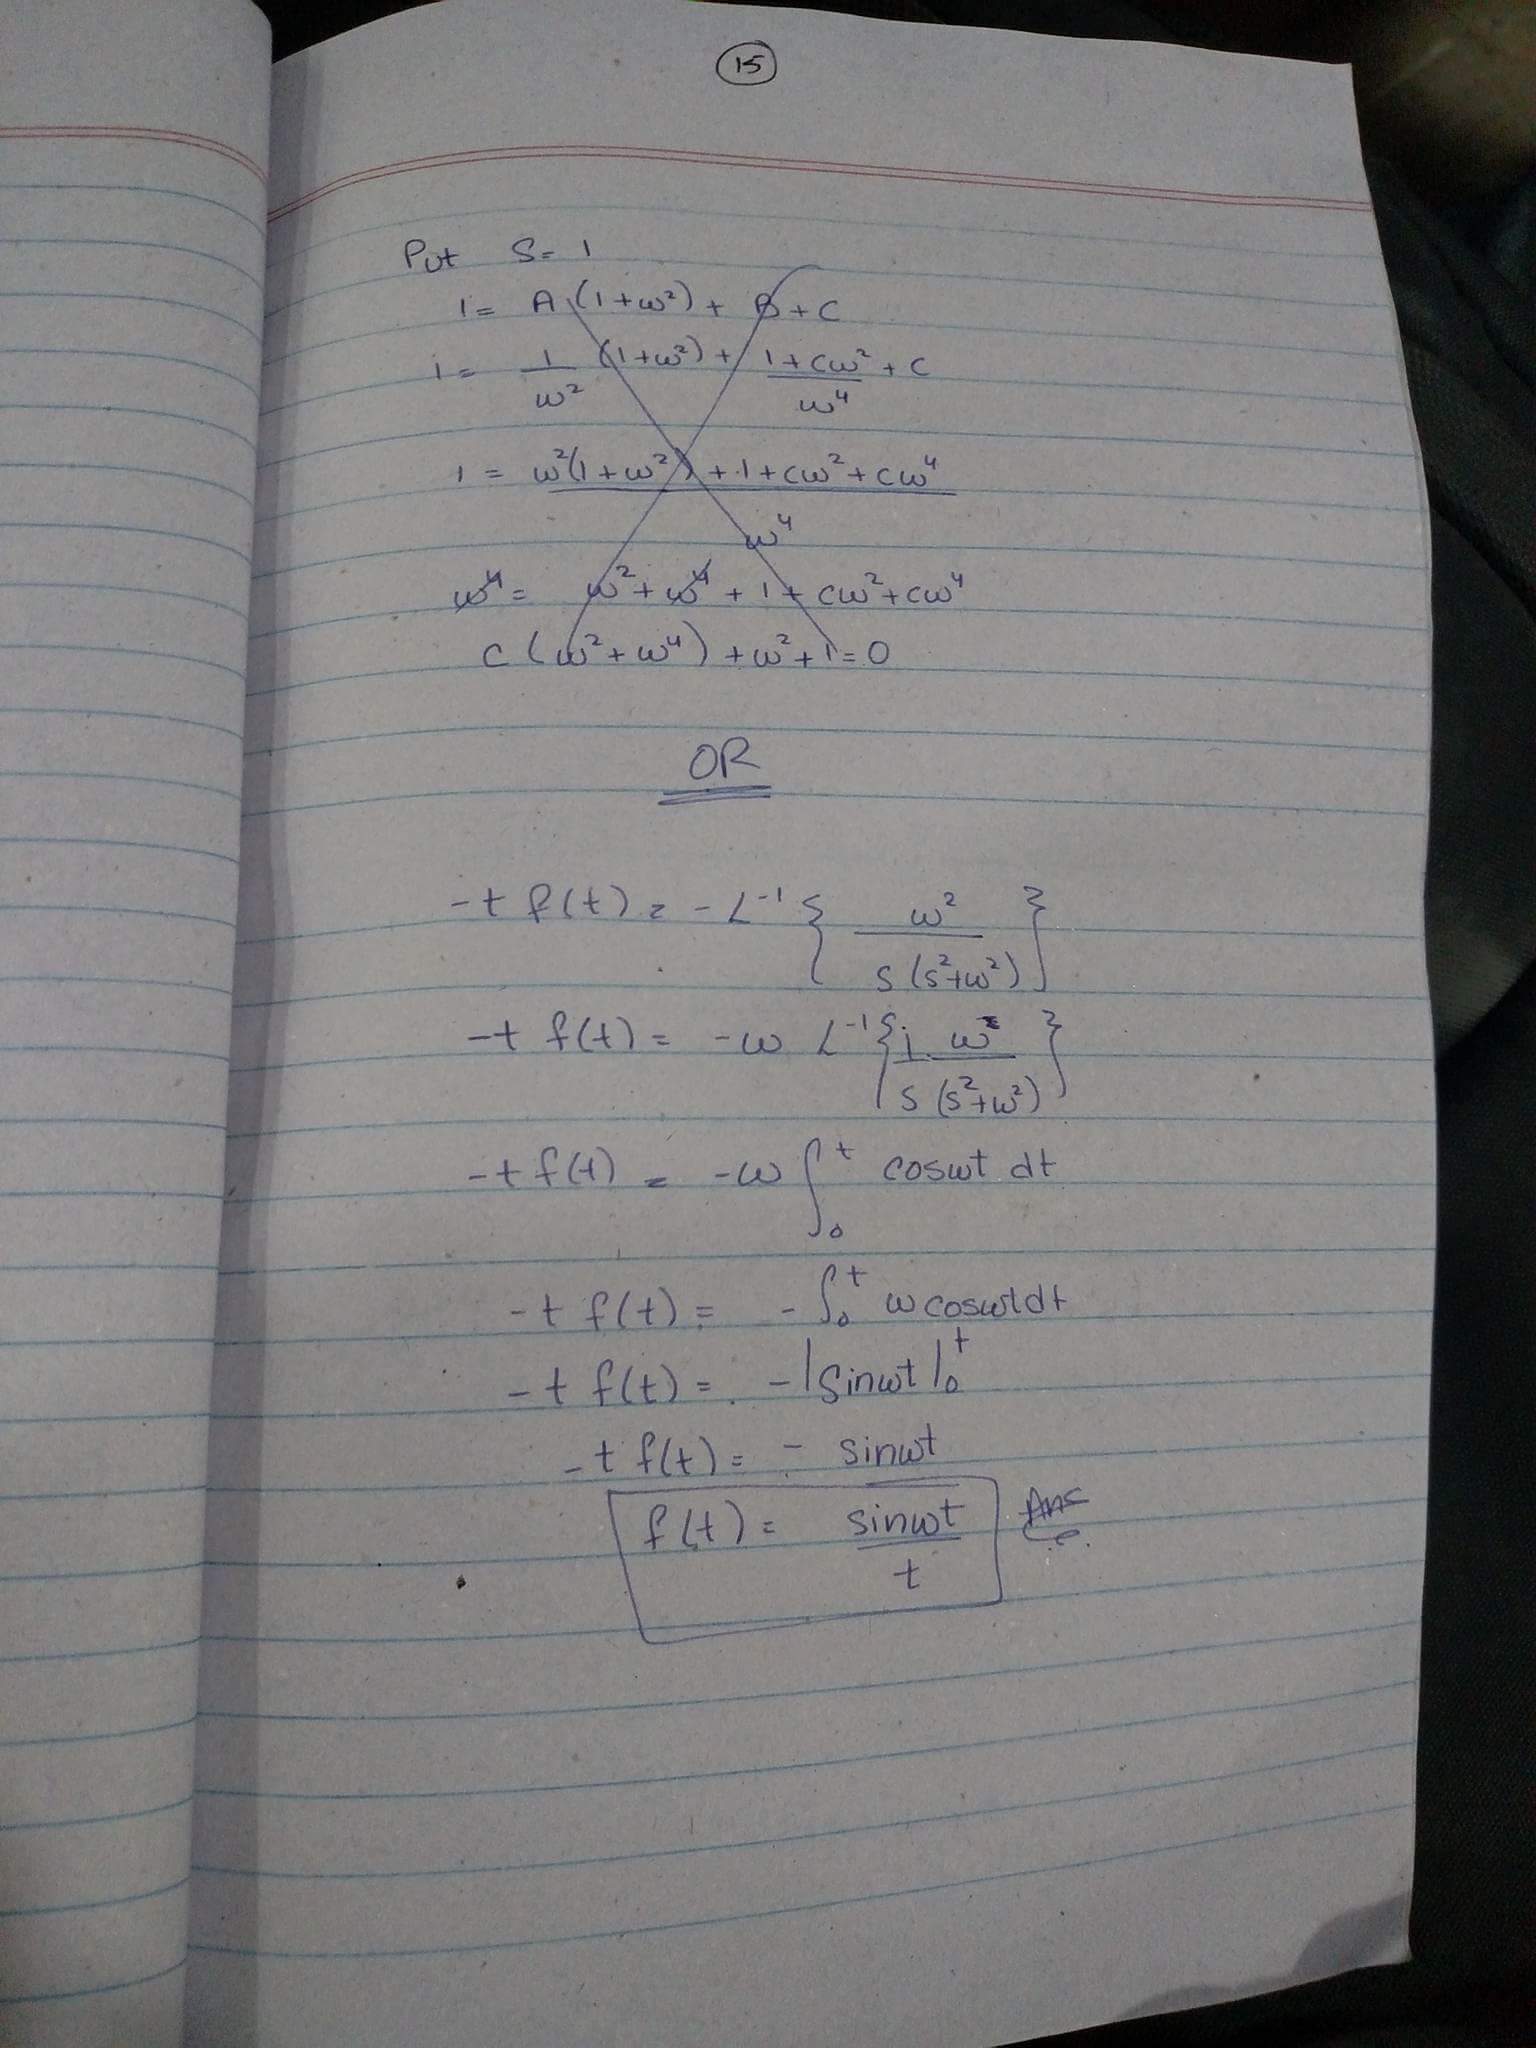 15
Put S = 1
1 = A (1+ω²) + B + C
1 = 1/ω² (1+ω²) + (1+Cω²)/ω⁴ + C
1 = (ω²(1+ω²) + 1 + Cω² + Cω⁴)/ω⁴
ω⁴ = ω² + ω⁴ + 1 + Cω² + Cω⁴
C (ω²+ω⁴) + ω² + 1 = 0
OR
-t f(t) = - L⁻¹ { ω² / S (S²+ω²) }
-t f(t) = -ω L⁻¹ { 1 . ω / S (S²+ω²) }
-t f(t) = -ω ∫₀ᵗ cosωt dt
-t f(t) = - ∫₀ᵗ ω cosωt dt
-t f(t) = - |Sinωt|₀ᵗ
-t f(t) = - sinωt
f(t) = sinωt / t Ans